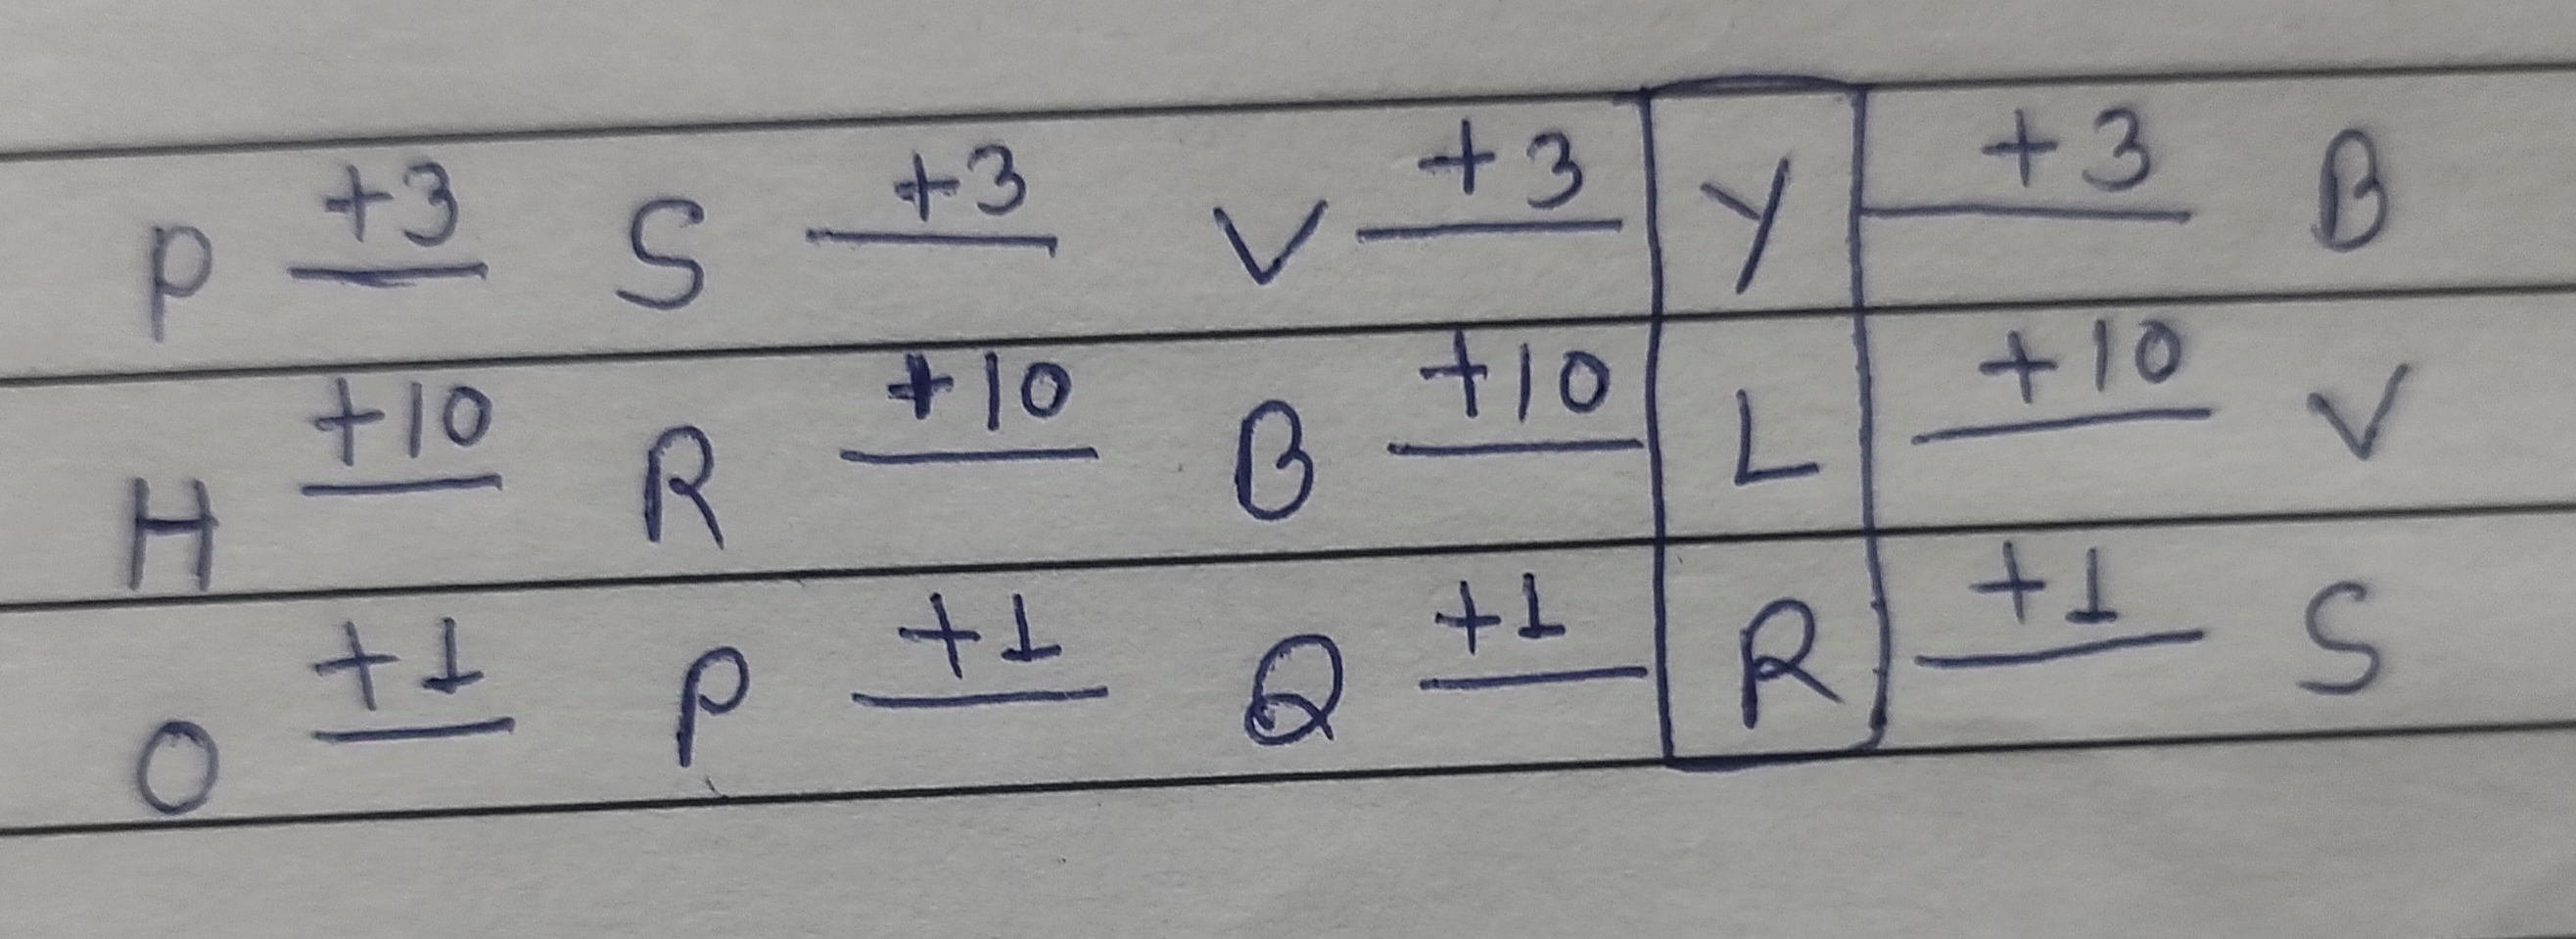 P +3 S +3 V +3 Y +3 B
H +10 R +10 B +10 L +10 V
O +1 P +1 Q +1 R +1 S